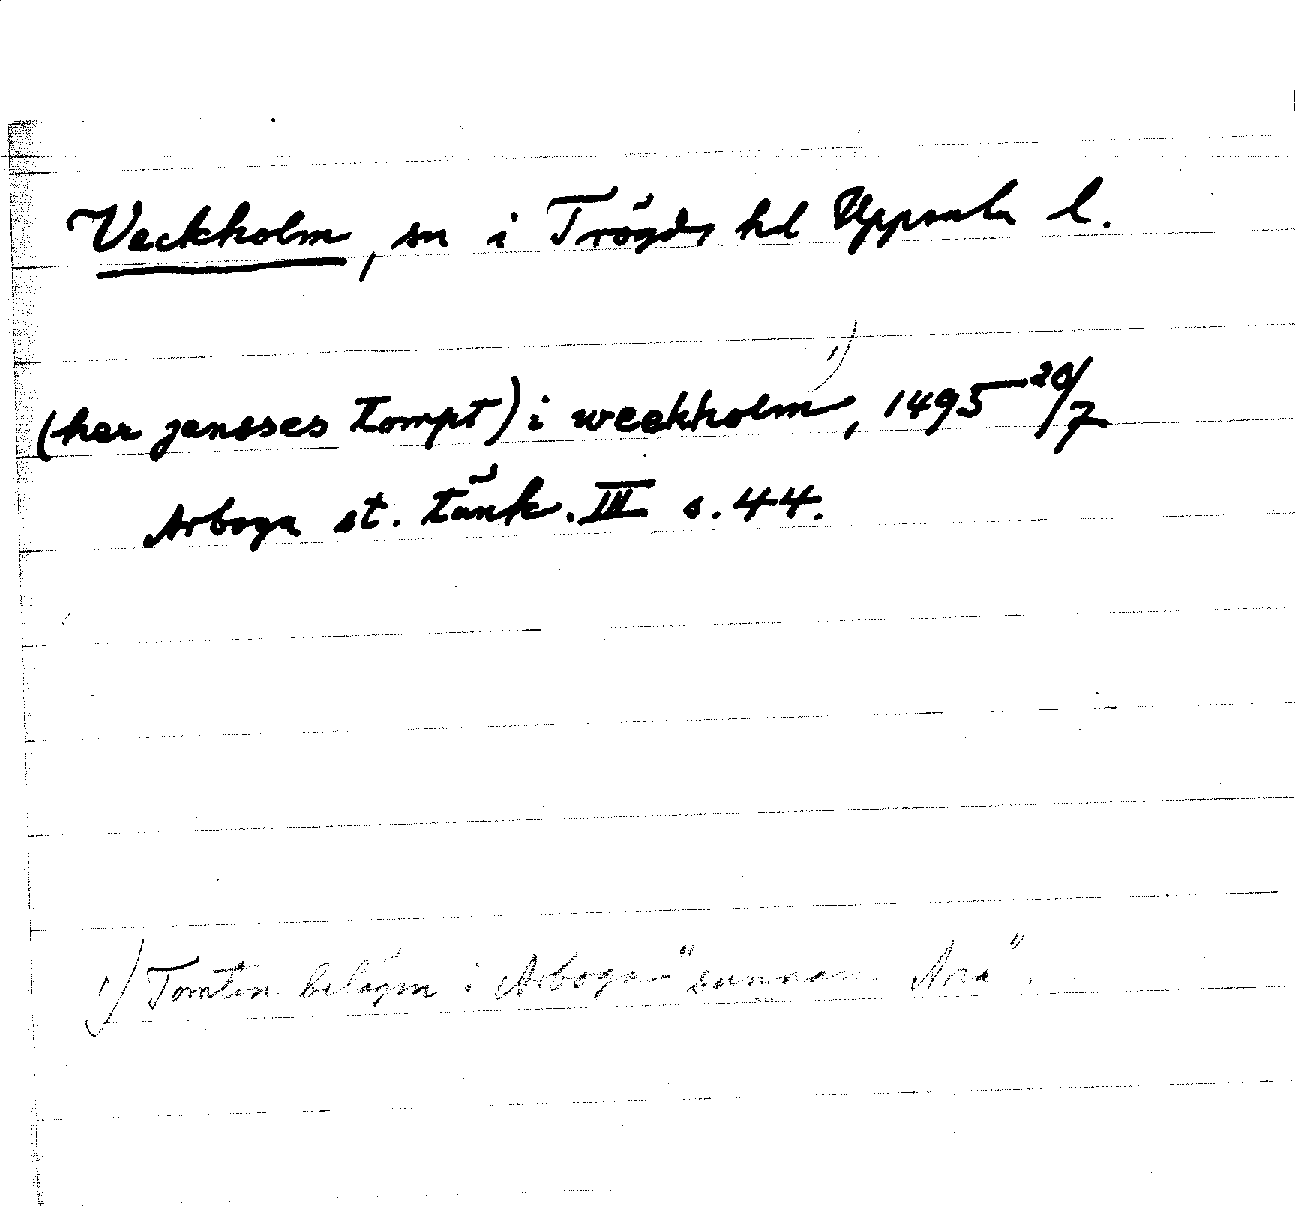 Veckholm, sn i Trögds hd Uppsala l.
(her jensses tompt) i weekholm 1), 1495 20/7
Arboga st. tänk. III s. 44.
1) Tomten belägen i Arboga "sunnan Ana".